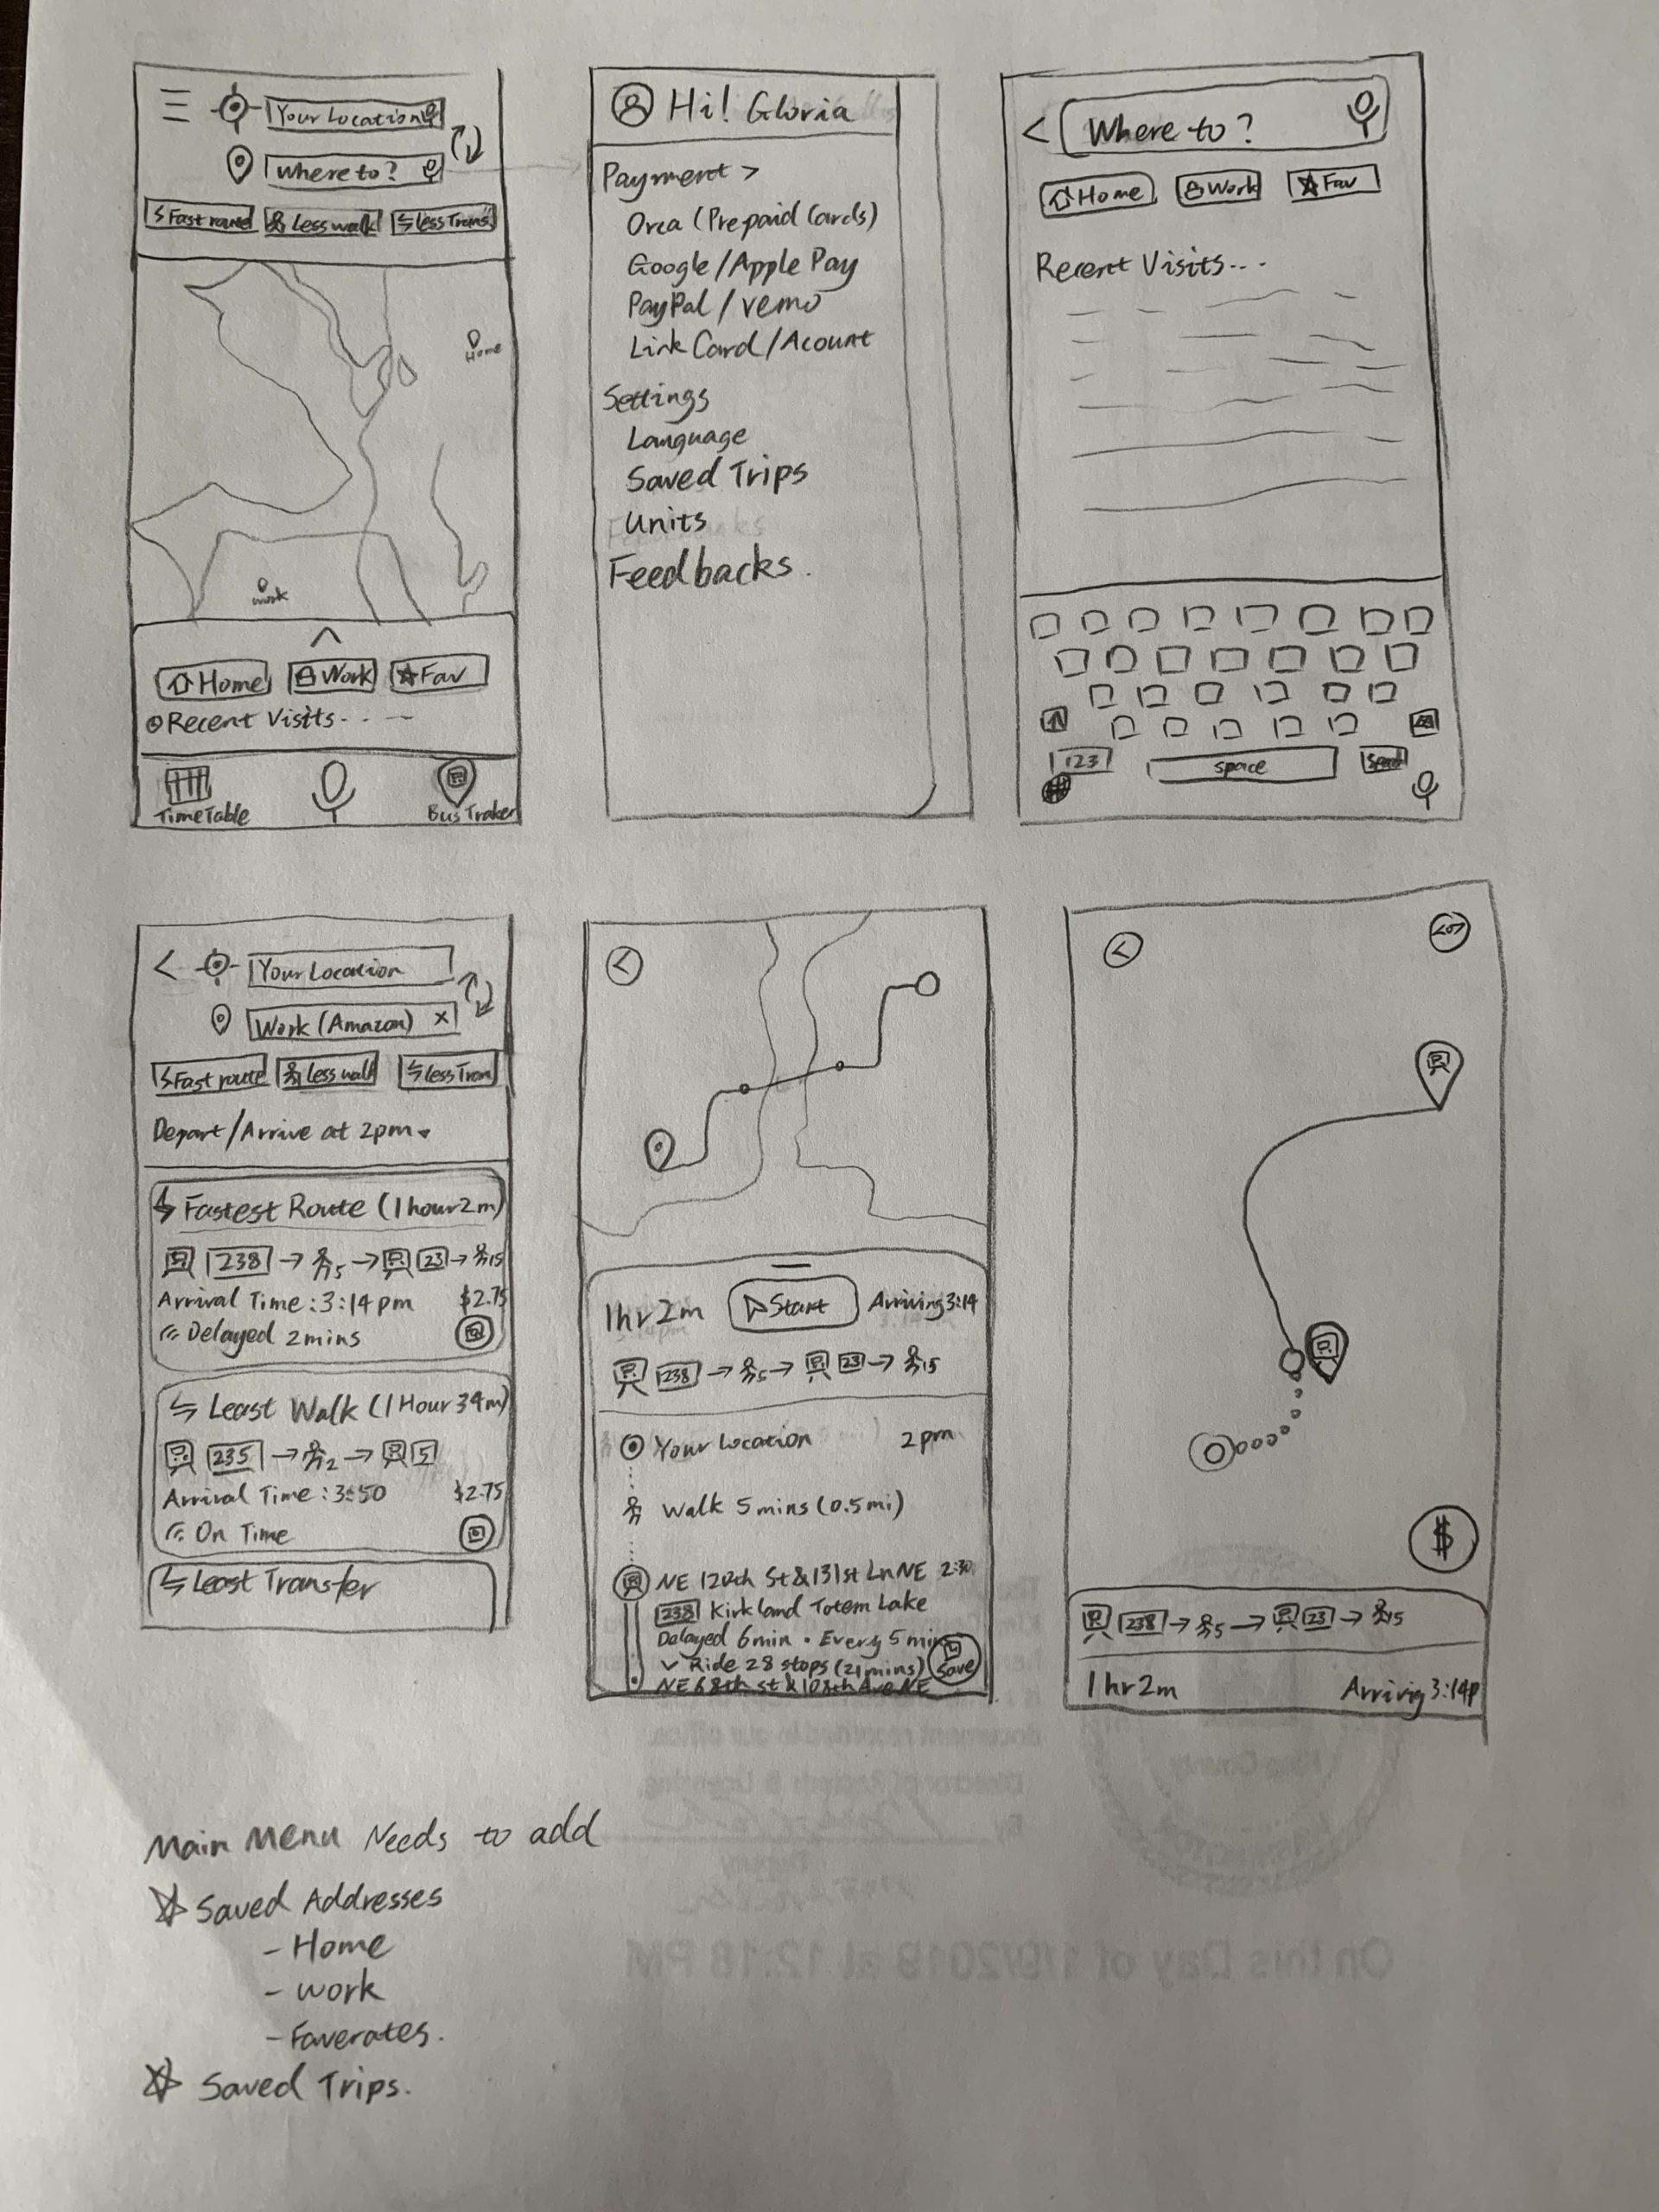 Your Location
Where to?
Fast route
Less walk
Less Trans
Home
Work
Home
Work
Fav
Recent Visits - - —
Time Table
Bus Traker
Hi! Gloria
Payment >
Orca (Prepaid Cards)
Google/Apple Pay
PayPal/Vemo
Link Card/Acount
Settings
Language
Saved Trips
Units
Feedbacks.
< Where to?
Home
Work
Fav
Recent Visits...
123
space
< Your Location
Work (Amazon) X
Fast route
Less walk
Less Tran
Depart/Arrive at 2pm
Fastest Route (1hour2m)
238 → 5 → 23 → 15
Arrival Time: 3:14pm $2.75
Delayed 2mins
Least Walk (1Hour 34m)
235 → 2 → 5
Arrival Time: 3:50 $2.75
On Time
Least Transfer
<
1hr2m Start Arriving 3:14
238 → 5 → 23 → 15
Your Location 2pm
Walk 5mins (0.5mi)
NE 120th St & 131st Ln NE 2:30
238 Kirkland Totem Lake
Delayed 6min • Every 5min
Ride 28 stops (21mins)
Save
NE 68th st & 108th Ave NE
<
$
238 → 5 → 23 → 15
1hr2m Arrivig 3:14p
Main Menu Needs to add
Saved Addresses
- Home
- work
- Faverates.
Saved Trips.
King County
document recorded in our office.
Deputy
On this Day of 1/9/2019 at 12:18 PM